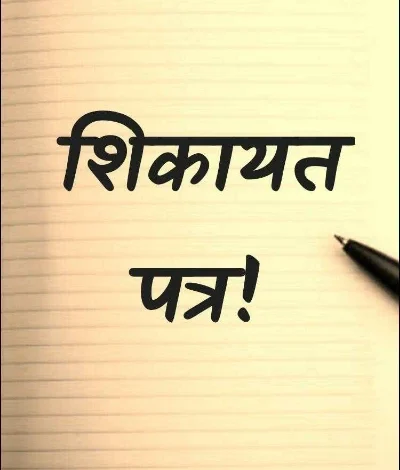 शिकायत
पत्र!